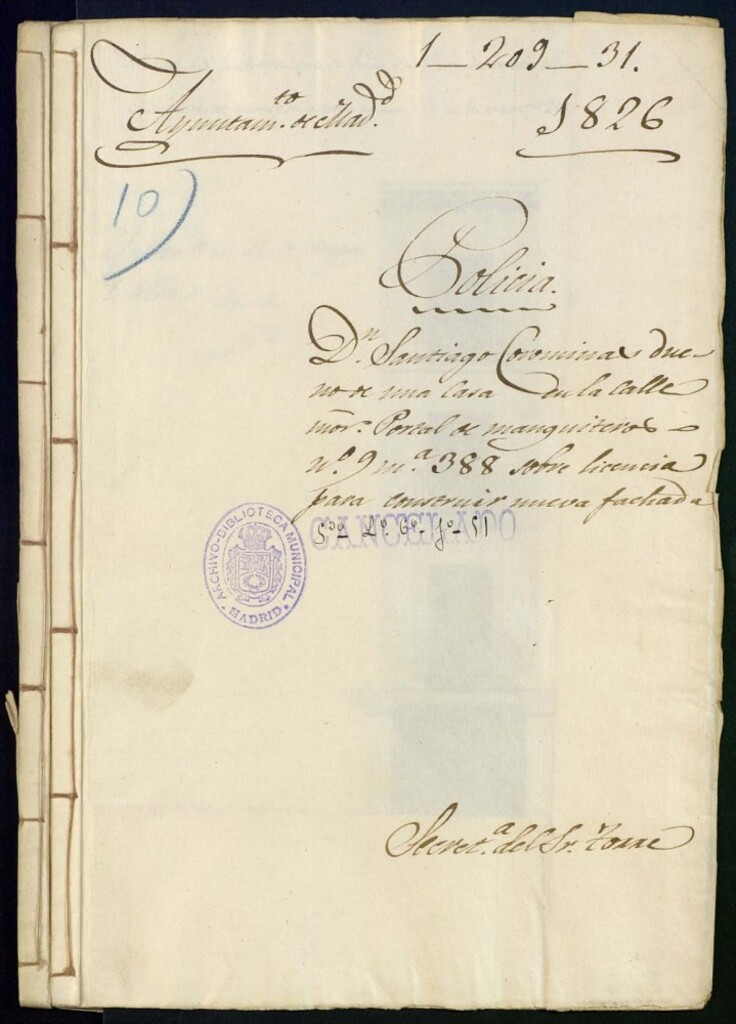 1-209-31.
Ayuntam.to de Mad.d
1826
10)
Policia.
D.n Santiago Corominas due-
no de una Casa en la Calle
mor. Portal de manguiteros
n.o 9 m.a 388 sobre licencia
para construir nueva fachada
ARCHIVO-BIBLIOTECA MUNICIPAL
· MADRID ·
Secret.a del Sr. Torre